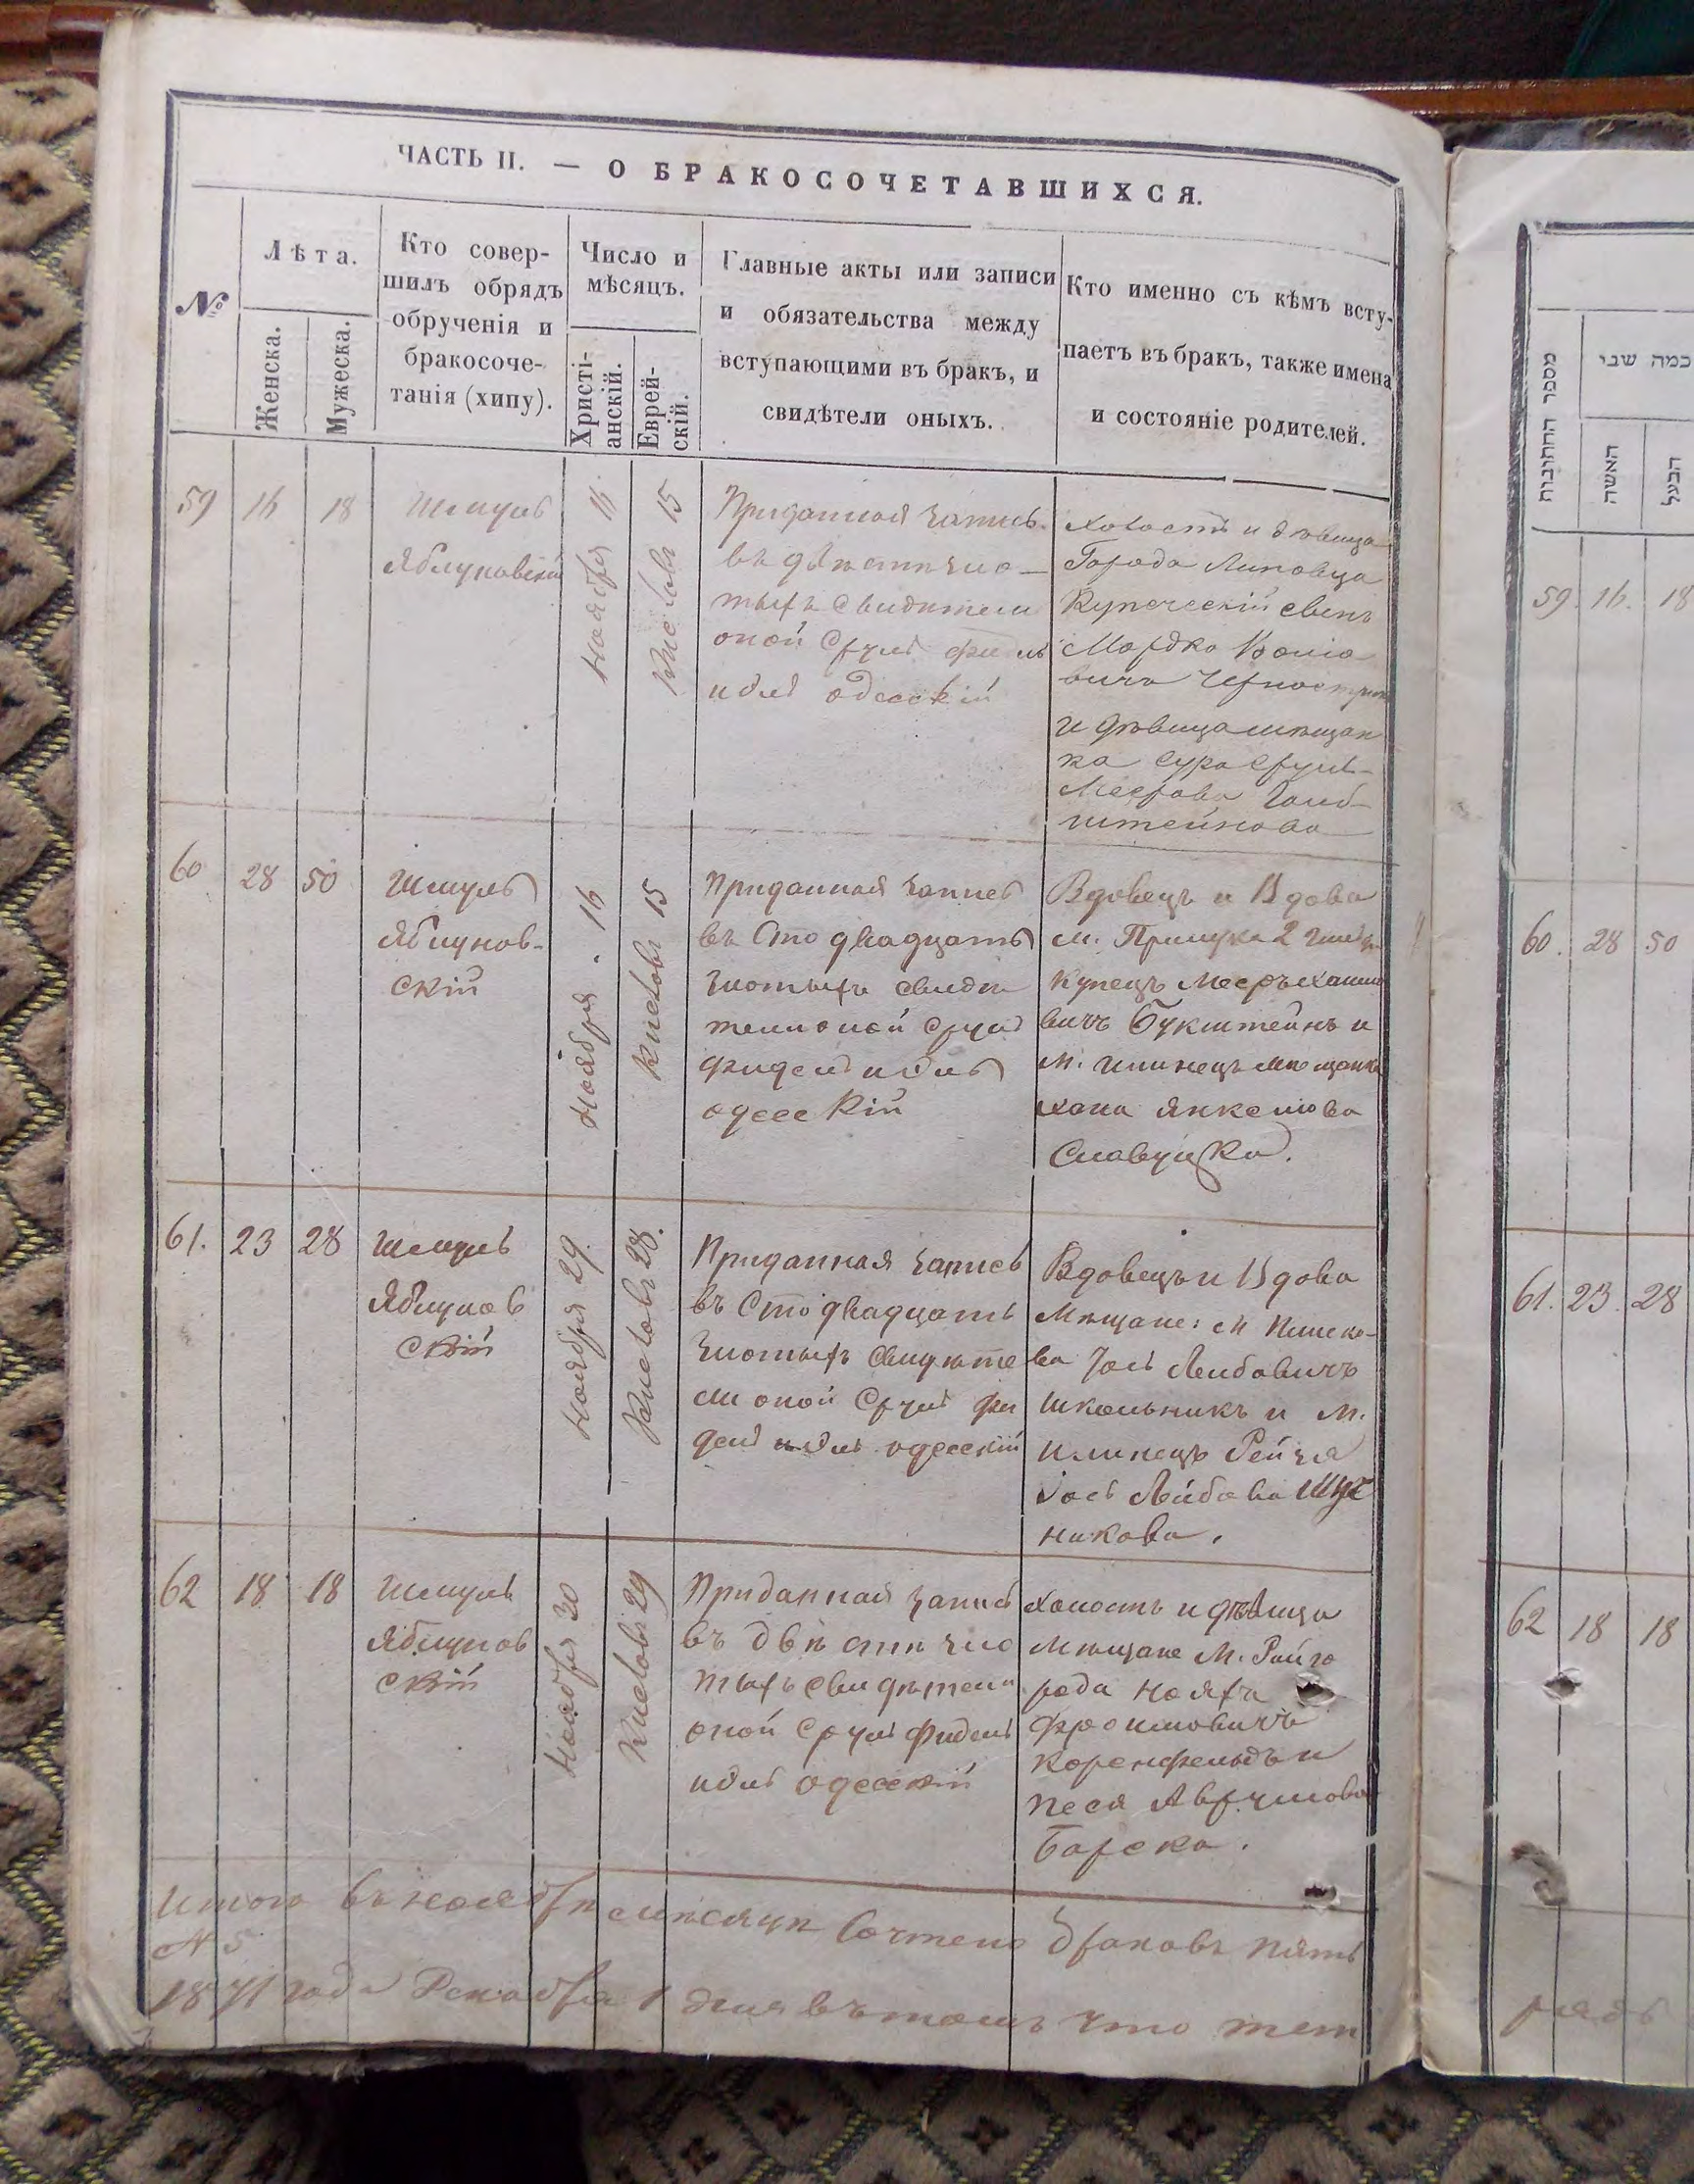 ЧАСТЬ II. — О БРАКОСОЧЕТАВШИХСЯ.
№
Лѣта.
Женска.
Мужеска.
Кто совер-
шилъ обрядъ
обрученія и
бракосоче-
танія (хипу).
Число и
мѣсяцъ.
Христі-
анскій.
Еврей-
скій.
Главные акты или записи
и обязательства между
вступающими въ бракъ, и
свидѣтели оныхъ.
Кто именно съ кѣмъ всту-
паетъ въ бракъ, также имена
и состояніе родителей.
59
16
18
Шмуль
Яблуновскій
Ноября 16
Кислевъ 15
Приданная запись
въ двѣсти зло-
тыхъ свидѣтели
оной Сруль Фидель
Идль Одесскій
холостъ и дѣвица
Города Липовца
Купеческій сынъ
Мордко
и дѣвица мѣщан
ка Сура Сруль
Меерова
штейнова
60
28
50
Шмуль
Яблунов-
скій
Ноября 16
Кислевъ 15
Приданная запись
въ Сто двадцать
злотыхъ свидѣ
тели оной Сруль
Фидель Идль
Одесскій
Вдовецъ и Вдова
м. Прилука 2 гильд
купецъ Мееръ
вичъ Букштейнъ и
м. Илинецъ мѣщанка
Хана Янкелова
61.
23
28
Шмуль
Яблунов
скій
Ноября 29.
Кислевъ 28.
Приданная запись
въ Сто двадцать
злотыхъ свидѣте
ли оной Сруль Фи
дель Идль Одесскій
Вдовецъ и Вдова
Мѣщане: м
ва Лейбовичъ
Школьникъ и м.
Илинецъ Рейзя
Лейбова
никова.
62
18
18
Шмуль
Яблунов
скій
Ноября 30
Кислевъ 29
Приданная запись
въ двѣсти зло
тыхъ свидѣтели
оной Сруль Фидель
Идль Одесскій
холостъ и дѣвица
мѣщане м. Райго
рода Нояхъ
Фроимовичъ
Коренфельдъ и
Песя Аврумова
Барска.
Итого въ ноябрѣ мѣсяцѣ Сочтено браковъ пять
№ 5
1871 года Декабря 1 дня въ томъ что
מספר החתונות
כמה שני
האשה
הבעל
59. 16. 18
60. 28 50
61. 23. 28
62 18 18